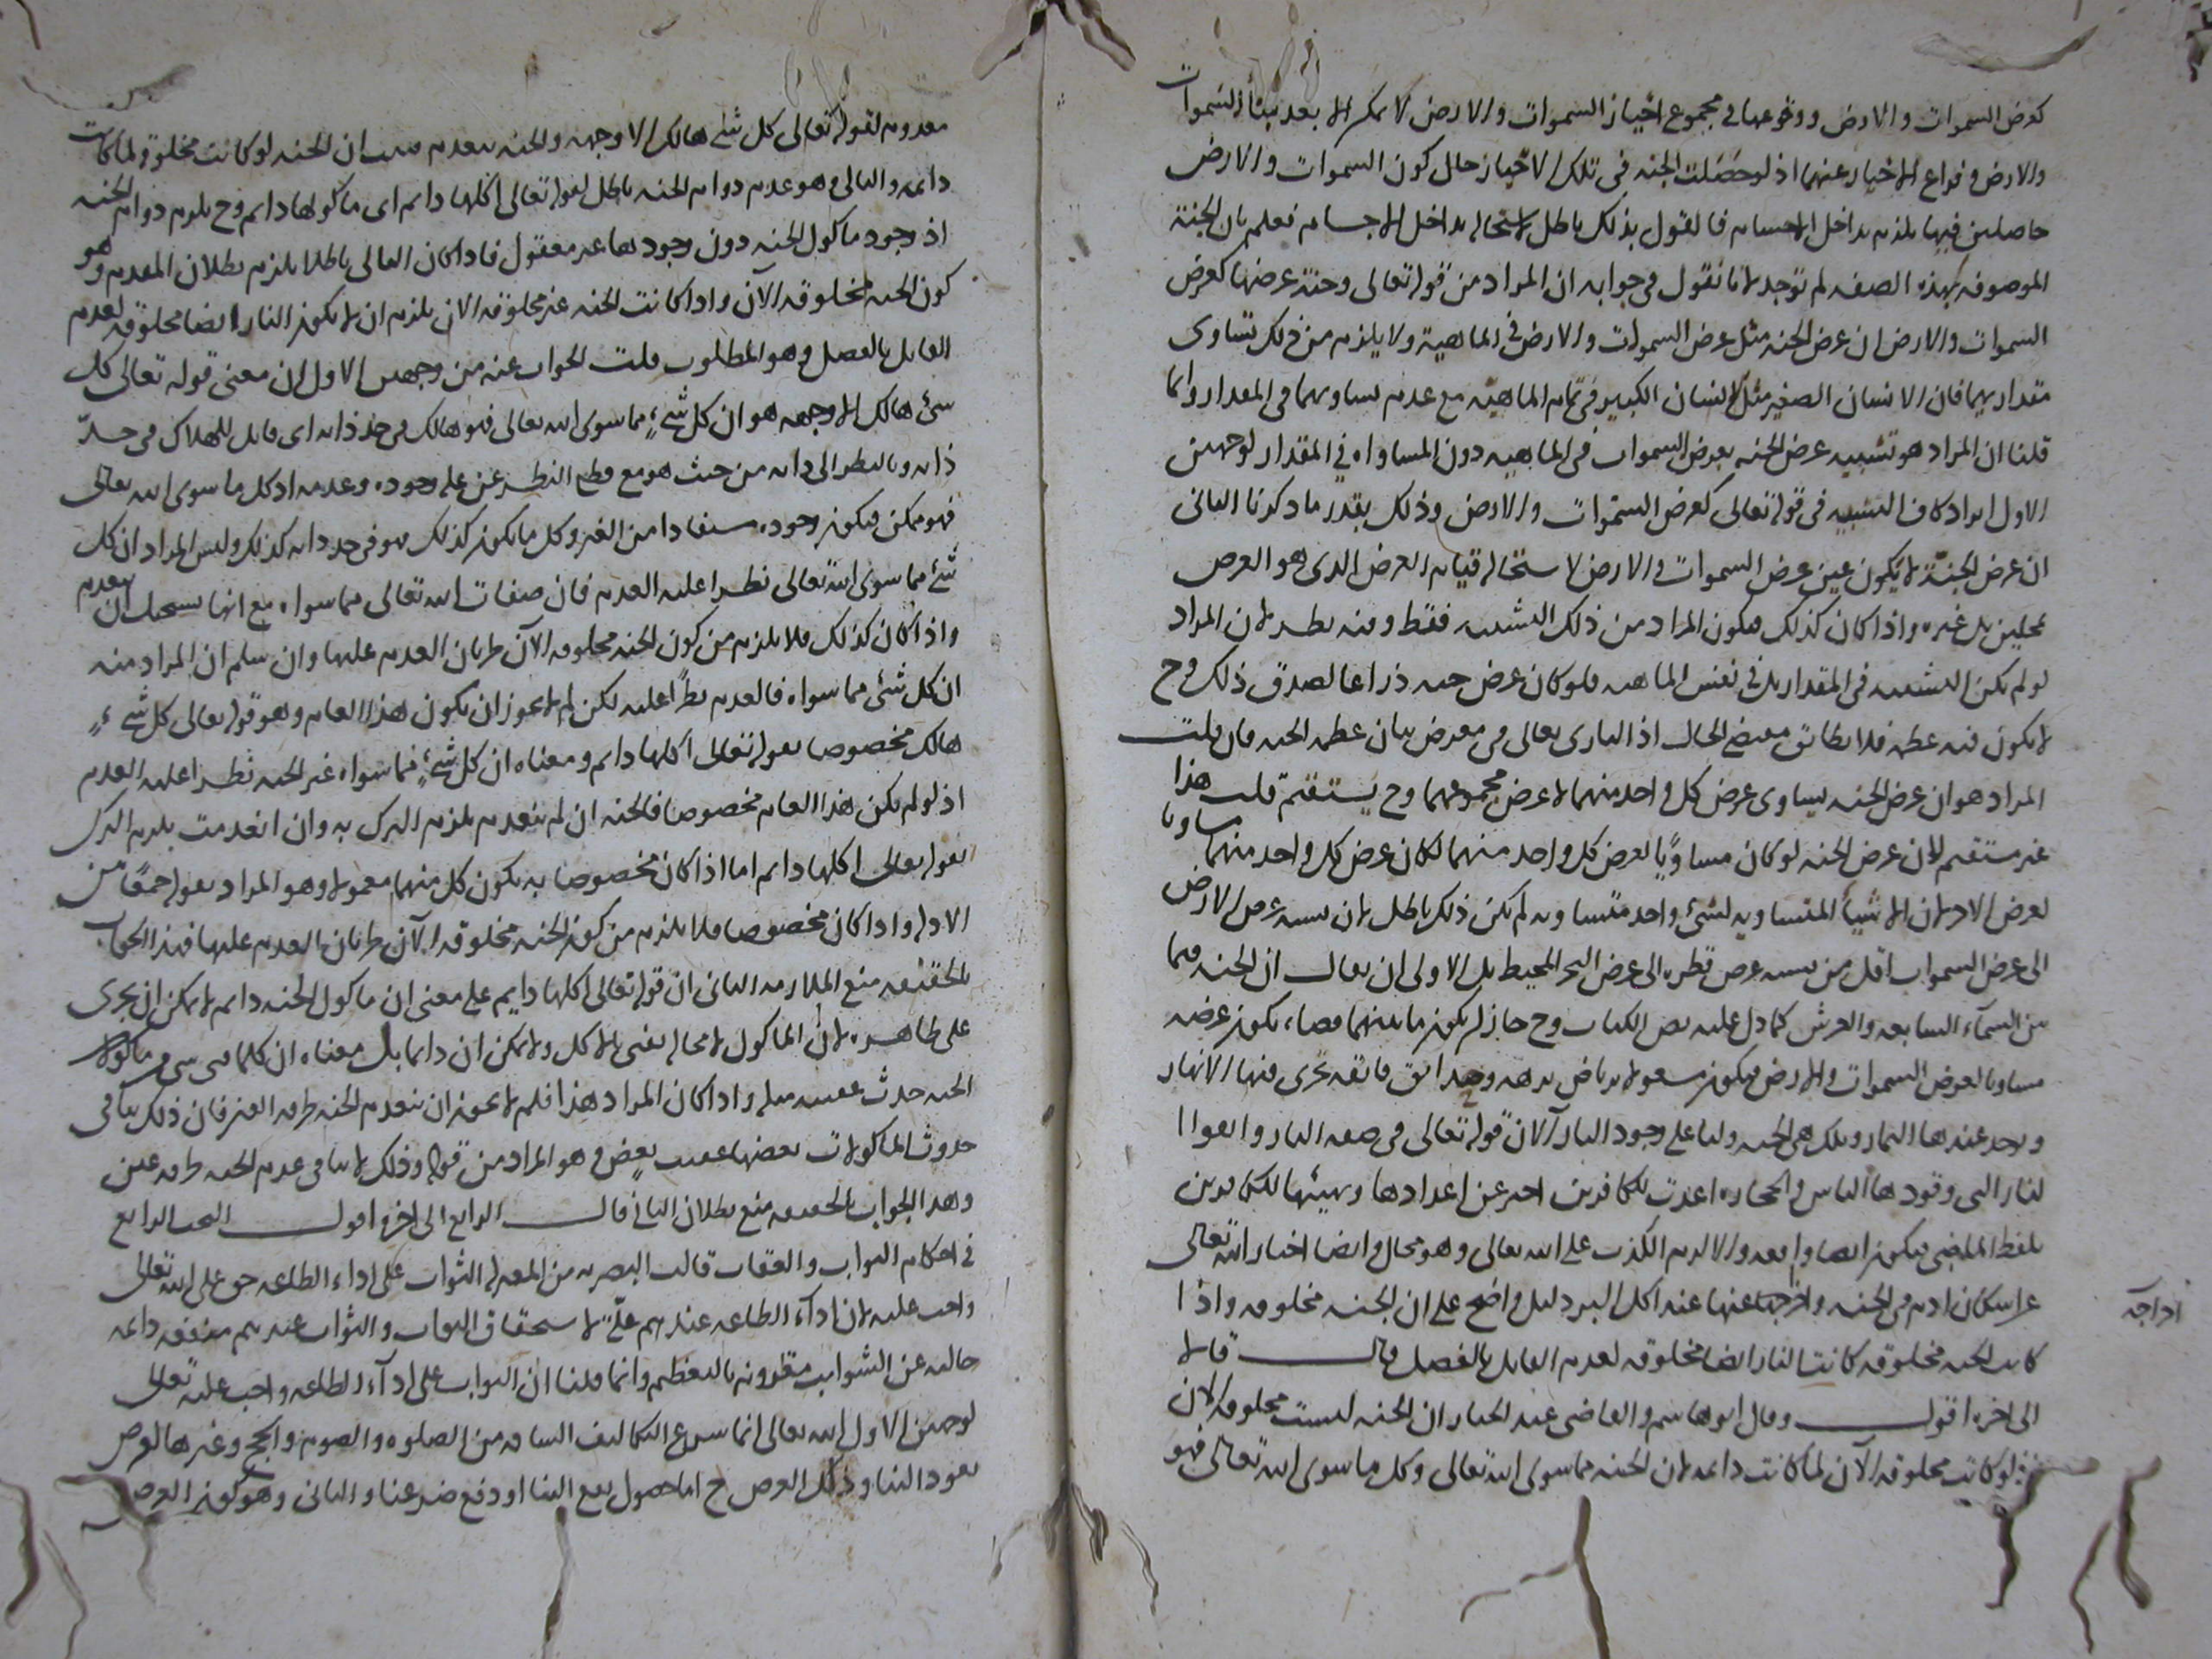 كعرض السموات والارض ووقوعها في مجموع احياز السموات والارض لا يمكن الا بعد فناء السموات
والارض وفراغ الاحياز عنهما اذ لو حصلت الجنة في تلك الاحياز حال كون السموات والارض
حاصلين فيها يلزم تداخل الاجسام فالقول بذلك باطل لاستحالة تداخل الاجسام فعلم بان الجنة
الموصوفة بهذه الصفة لم توجد لانا نقول في جوابه ان المراد من قوله تعالى وجنة عرضها كعرض
السموات والارض ان عرض الجنة مثل عرض السموات والارض في الماهية ولا يلزم من ذلك تساوى
مقداريهما فان الانسان الصغير مثل الانسان الكبير في تمام الماهية مع عدم تساويهما في المقدار وانما
قلنا ان المراد هو تشبيه عرض الجنة بعرض السموات في الماهية دون المساواة في المقدار لوجهين
الاول ايراد كاف التشبيه في قوله تعالى كعرض السموات والارض وذلك بقدر ما ذكرنا الثانى
ان عرض الجنة لا يكون عين عرض السموات والارض لاستحالة قيام العرض الذى هو العرض
بمحلين بل غيره واذا كان كذلك فيكون المراد من ذلك التشبيه فقط وفيه نظر لان المراد
لو لم يكن التشبيه في المقدار بل في نفس الماهية فلو كان عرض جنة ذراعا لصدق ذلك وح
لا يكون فيه عظمة فلا يطابق مقتضى الحال اذ البارى تعالى في معرض بيان عظمة الجنة فان قلت
المراد هو ان عرض الجنة يساوى عرض كل واحد منهما لا عرض مجموعهما وح يستقيم قلت هذا
غير مستقيم لان عرض الجنة لو كان مساويا لعرض كل واحد منهما لكان عرض كل واحد منهما مساويا
لعرض الاخر لان الاشياء المتساوية لشئ واحد متساوية لم يكن ذلك باطل لان نسبة عرض الارض
الى عرض السموات اقل من نسبة عرض قطرة الى عرض البحر المحيط بل الاولى ان يقال ان الجنة فيما
بين السماء السابعة والعرش كما دل عليه نص الكتاب وح جاز ان يكون ما بينهما فضاء يكون عرضه
مساويا لعرض السموات والارض فيكون مشغولا برياض نزهة وحدائق فائقة تجرى فيها الانهار
ويوجد عندها الثمار وتلك هي الجنة ولنا على وجود النار الآن قوله تعالى في صفة النار واتقوا ا
لنار التى وقودها الناس والحجارة اعدت للكافرين اخبر عن اعدادها وتهيئها للكافرين
بلفظ الماضى فيكون ايضا واقعة والا لزم الكذب على الله تعالى وهو محال وايضا اخبار الله تعالى
عن اسكان ادم في الجنة واخراجه عنها عند اكل البر دليل واضح على ان الجنة مخلوقة واذا
كانت الجنة مخلوقة كانت النار ايضا مخلوقة لعدم القايل بالفصل قال قالا
الى اخره اقول وقال ابو هاشم والقاضى عبد الجبار ان الجنة ليست مخلوقة الان
لو كانت مخلوقة الآن لما كانت دائمة لان الجنة مما سوى الله تعالى وكل ما سوى الله تعالى فهو
اخراجه
معدوم لقوله تعالى كل شئ هالك الا وجهه والجنة تنعدم فثبت ان الجنة لو كانت مخلوقة لما كانت
دائمة والتالى وهو عدم دوام الجنة باطل لقوله تعالى اكلها دائم اى ماكولها دائم وح يلزم دوام الجنة
اذ وجود ماكول الجنة دون وجودها غير معقول فاذا كان التالى باطلا يلزم بطلان المقدم وهو
كون الجنة مخلوقة الآن واذا كانت الجنة غير مخلوقة الان يلزم ان لا يكون النار ايضا مخلوقة لعدم
القايل بالفصل وهو المطلوب قلت الجواب عنه من وجهين الاول ان معنى قوله تعالى كل
شئ هالك الا وجهه هو ان كل شئ مما سوى الله تعالى فهو هالك في حد ذاته اى قابل للهلاك في حد
ذاته وبالنظر الى ذاته من حيث هو مع قطع النظر عن علة وجوده وعدمه اذ كل ما سوى الله تعالى
فهو ممكن فيكون وجوده مستفادا من الغير وكل ما يكون كذلك فهو في حد ذاته كذلك وليس المراد ان كل
شئ مما سوى الله تعالى يطرا عليه العدم فان صفات الله تعالى مما سواه مع انها يستحيل ان تنعدم
واذا كان كذلك فلا يلزم من كون الجنة مخلوقة الآن طريان العدم عليها وان سلم ان المراد منه
ان كل شئ مما سواه فالعدم يطرا عليه لكن لم لا يجوز ان يكون هذا العام وهو قوله تعالى كل شئ
هالك مخصوصا بقوله تعالى اكلها دائم ومعناه ان كل شئ مما سواه غير الجنة يطرا عليه العدم
اذ لو لم يكن هذا العام مخصوصا فالجنة ان لم تنعدم يلزم الترك به وان انعدمت يلزم الترك
بقوله تعالى اكلها دائم اما اذا كان مخصوصا به يكون كل منهما معمولا وهو المراد بقوله جمعا بين
الادلة واذا كان مخصوصا فلا يلزم من كون الجنة مخلوقة الآن طريان العدم عليها فهذا الجواب
بالحقيقة منع الملازمة الثانى ان قوله تعالى اكلها دايم على معنى ان ماكول الجنة دائم لا يمكن ان يجرى
على ظاهره لان الماكول لا محالة يفنى بالاكل ولا يمكن ان دائما بل معناه ان كلما فنى شئ من ماكولات
الجنة حدث عقيبه مثله واذا كان المراد هذا فلم لا يجوز ان تنعدم الجنة طرفة العين فان ذلك ينافى
حدوث الماكولات بعضها عقيب بعض وهو المراد من قوله وذلك لا ينافى عدم الجنة طرفة عين
وهذا الجواب بالحقيقة منع بطلان التالى قال الرابع الى اخره اقول البحث الرابع
في احكام الثواب والعقاب قالت البصرية من المعتزلة الثواب على اداء الطاعة حق على الله تعالى
واجب عليه لان اداء الطاعة عندهم علة لاستحقاق الثواب والثواب عندهم منفعة دائمة
خالية عن الشوايب مقرونة بالتعظيم وانما قلنا ان الثواب على اداء الطاعة واجب عليه تعالى
لوجهين الاول ان الله تعالى انما شرع التكاليف الشاقة من الصلوة والصوم والحج وغيرها لغرض
يعود الينا وذلك الغرض ح اما حصول نفع الينا او دفع ضر عنا والثانى وهو كون الغرض